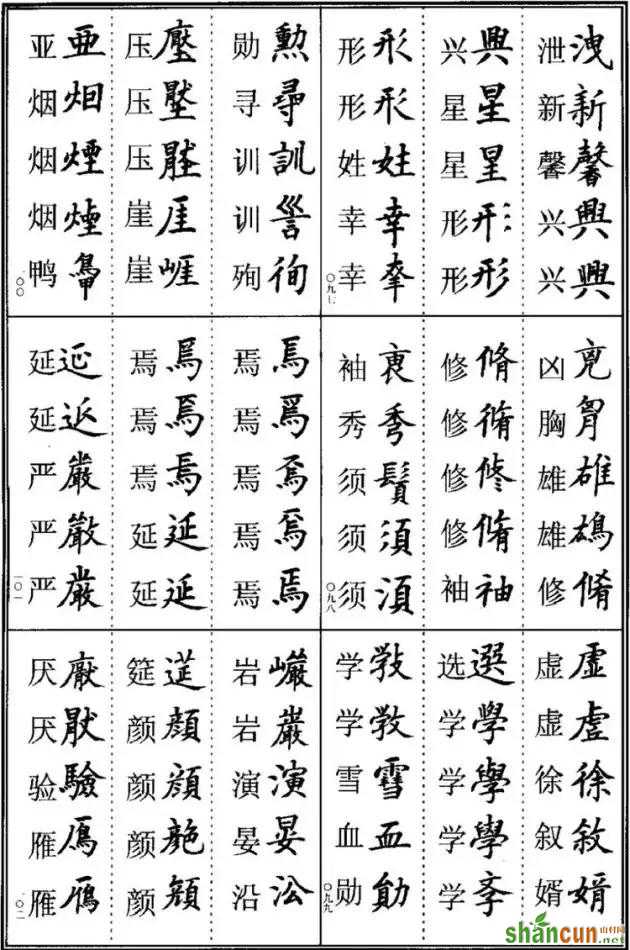 泄洩 新新 馨馨 兴興 兴興
兴興 星星 星 形形 形形
形形 形形 姓姓 幸幸 幸
〇九七
凶兇 胸胷 雄雄 雄鴆 修脩
修脩 修脩 修修 修脩 袖袖
袖褎 秀秀 须鬚 须須 须湏
〇九八
虚虛 虚虗 徐徐 叙敘 婿婿
选選 学學 学學 学學 学斈
学斅 学敩 雪雪 血血 勋勛
〇九九
勋勳 寻尋 训訓 训 殉徇
压壓 压 压 崖厓 崖崕
亚亞 烟烟 烟煙 烟煙 鸭鴨
一〇〇
焉焉 焉焉 焉焉 焉焉 焉焉
焉焉 焉焉 焉焉 延延 延延
延延 延 严嚴 严 严嚴
一〇一
岩巖 岩巖 演演 晏晏 沿沿
筵莚 颜顏 颜顔 颜 颜顔
厌厭 厌猒 验驗 雁鴈 雁鴈
一〇二
shancun
山村网